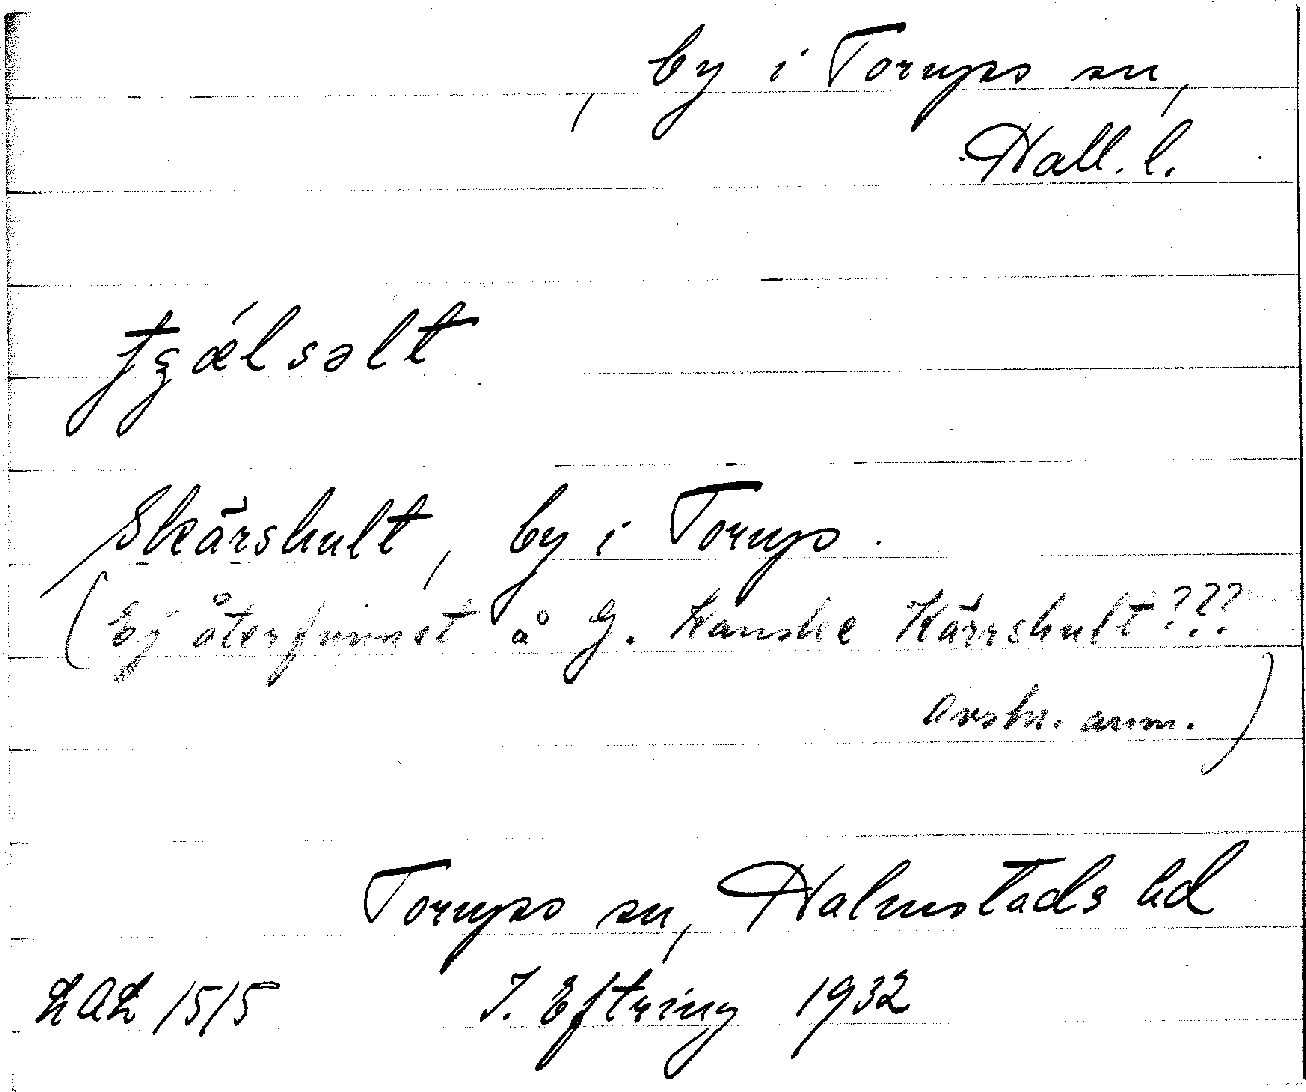 , by i Torups sn,
Hall. l.
Skärshult, by i Torups.
(Ej återfunnet å G. Kanske Kärrshult???
Avskr. anm.)
Torups sn, Halmstads hd
LAL 1515 J. Eftring 1932